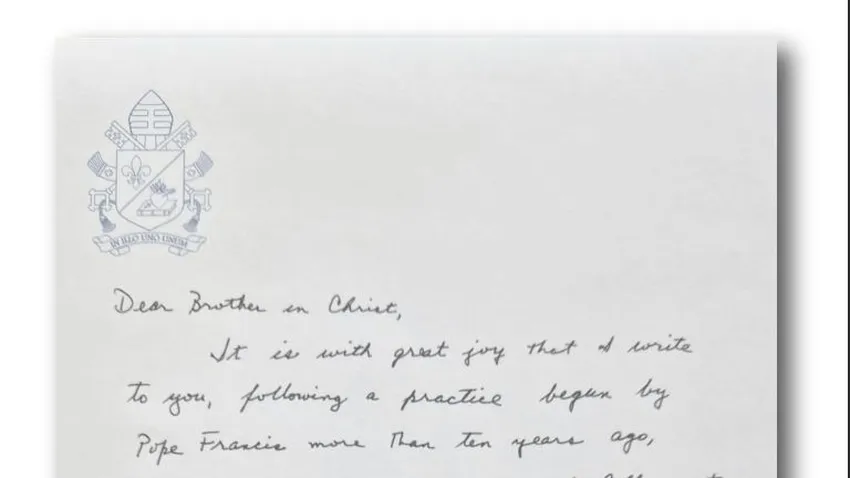 IN ILLO UNO UNUM
Dear Brother in Christ,
It is with great joy that I write
to you, following a practice begun by
Pope Francis more than ten years ago,